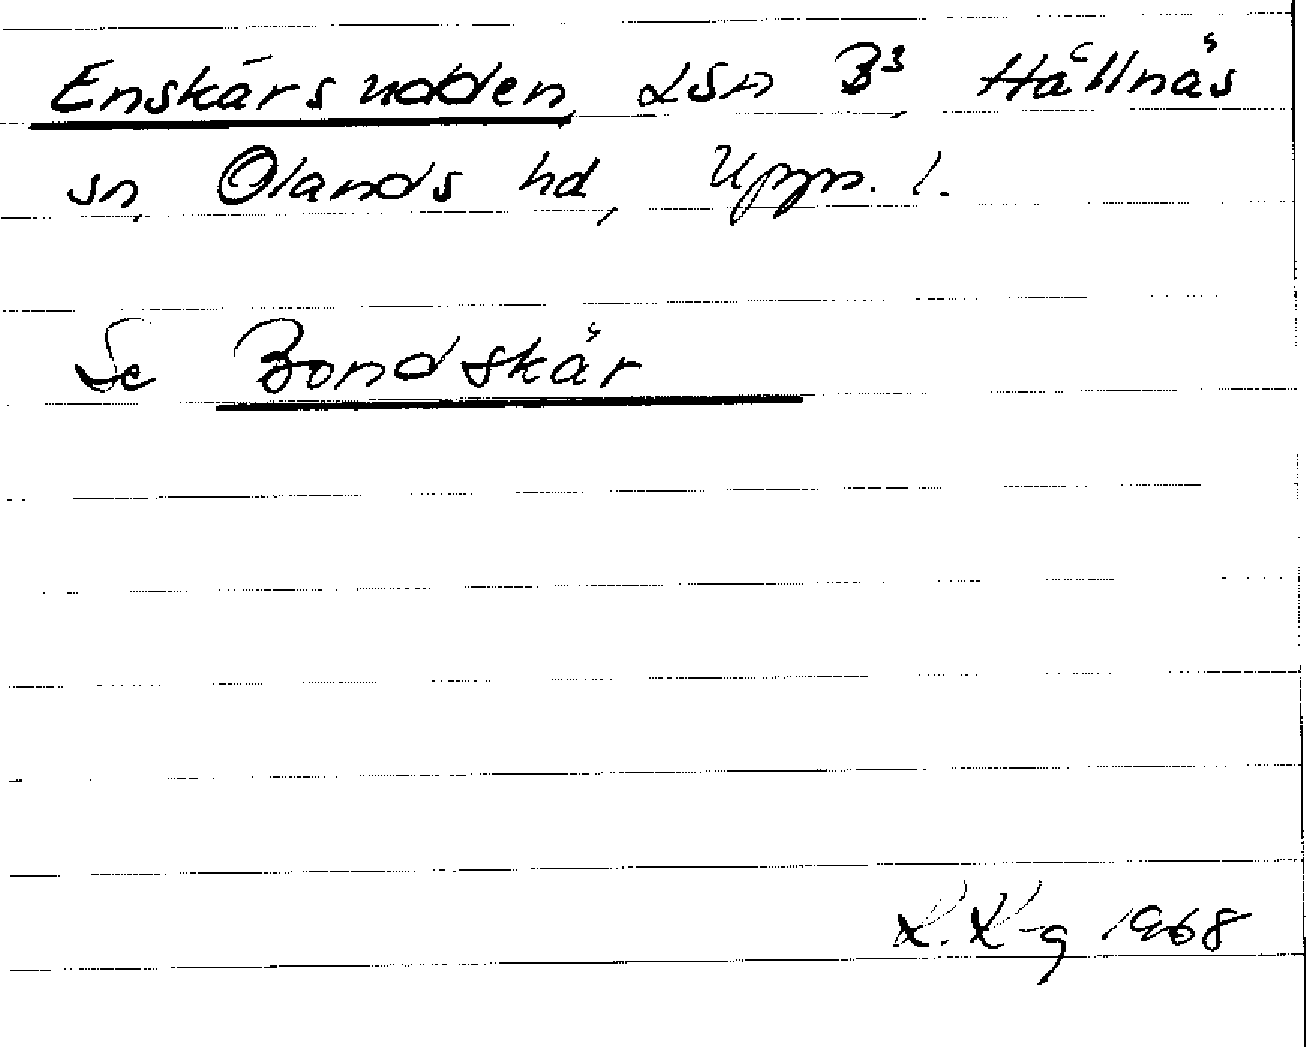 Enskärsudden, LSA B3, Hållnäs
sn, Olands hd, Uppl.
Se Bondskär
K. K-g 1968